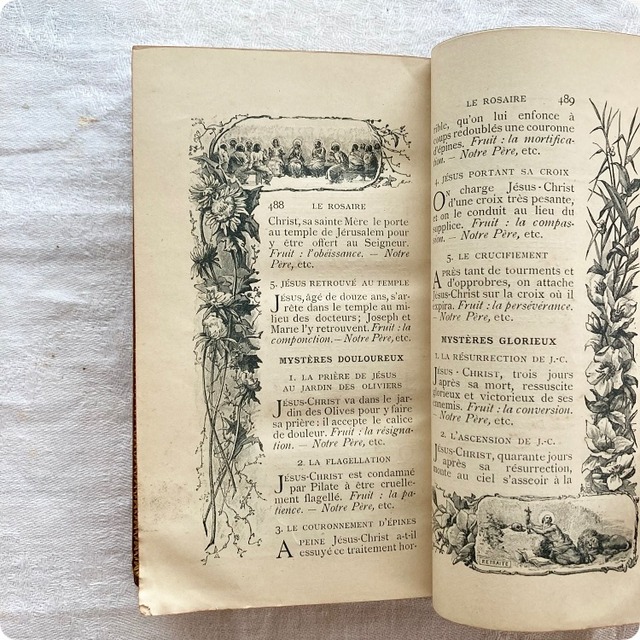 488 LE ROSAIRE
Christ, sa sainte Mère le porte
au temple de Jérusalem pour
y être offert au Seigneur.
Fruit : l'obéissance. — Notre
Père, etc.
5. JÉSUS RETROUVÉ AU TEMPLE
Jésus, âgé de douze ans, s'ar-
rête dans le temple au mi-
lieu des docteurs; Joseph et
Marie l'y retrouvent. Fruit : la
componction. — Notre Père, etc.
MYSTÈRES DOULOUREUX
1. LA PRIÈRE DE JÉSUS
AU JARDIN DES OLIVIERS
Jésus-Christ va dans le jar-
din des Olives pour y faire
sa prière : il accepte le calice
de douleur. Fruit : la résigna-
tion. — Notre Père, etc.
2. LA FLAGELLATION
Jésus-Christ est condamné
par Pilate à être cruelle-
ment flagellé. Fruit : la pa-
tience. — Notre Père, etc.
3. LE COURONNEMENT D'ÉPINES
A PEINE Jésus-Christ a-t-il
essuyé ce traitement hor-
LE ROSAIRE 489
rible, qu'on lui enfonce à
coups redoublés une couronne
d'épines. Fruit : la mortifica-
tion. — Notre Père, etc.
4. JÉSUS PORTANT SA CROIX
On charge Jésus-Christ
d'une croix très pesante,
et on le conduit au lieu du
supplice. Fruit : la compas-
sion. — Notre Père, etc.
5. LE CRUCIFIEMENT
Après tant de tourments et
d'opprobres, on attache
Jésus-Christ sur la croix où il
expira. Fruit : la persévérance.
— Notre Père, etc.
MYSTÈRES GLORIEUX
1. LA RÉSURRECTION DE J.-C.
Jésus-Christ, trois jours
après sa mort, ressuscite
glorieux et victorieux de ses
ennemis. Fruit : la conversion.
— Notre Père, etc.
2. L'ASCENSION DE J.-C.
Jésus-Christ, quarante jours
après sa résurrection,
monte au ciel s'asseoir à la
RETRAITE